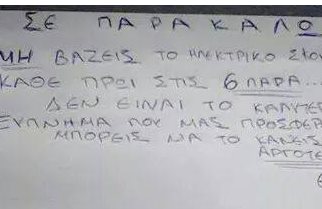 ΣΕ ΠΑΡΑΚΑΛΩ
ΜΗ ΒΑΖΕΙΣ ΤΟ ΗΛΕΚΤΡΙΚΟ
ΚΑΘΕ ΠΡΩΙ ΣΤΙΣ 6 ΠΑΡΑ...
ΔΕΝ ΕΙΝΑΙ ΤΟ ΚΑΛΥΤΕΡ
ΞΥΠΝΗΜΑ ΠΟΥ ΜΑΣ ΠΡΟΣΦΕΡ
ΜΠΟΡΕΙΣ ΝΑ ΤΟ ΚΑΝΕΙΣ
ΑΡΓΟΤΕ